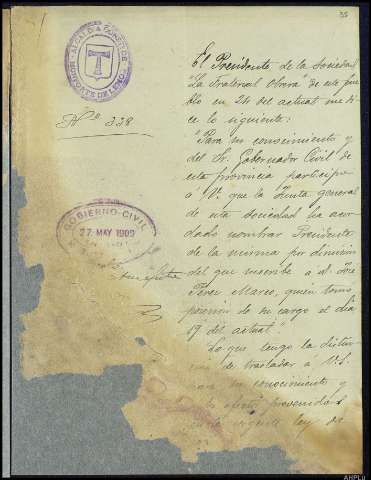 35
ALCALDIA CONSTITUC.
MONFORTE DE LEMOS
Nº 338
GOBIERNO CIVIL
27 MAY 1909
El Presidente de la Sociedad
"La Fraternal Obrera" de este pue
blo en 24 del actual me di
ce lo siguiente:
"Para su conocimiento y
del Sr. Gobernador Civil de
esta provincia participo
á V. que la Junta general
de esta Sociedad ha acor
dado nombrar Presidente
de la misma por dimisión
del que suscribe á D. José
Pérez Marco, quien tomó
posesión de su cargo el día
19 del actual."
Lo que tengo la distin
de trasladar á V.S.
su conocimiento y
efectos prevenidos
vigente ley de
AHPLu